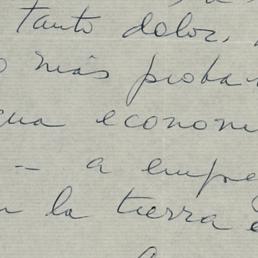 Tanto dolor,
más proba
econom
— a empre
la tierra